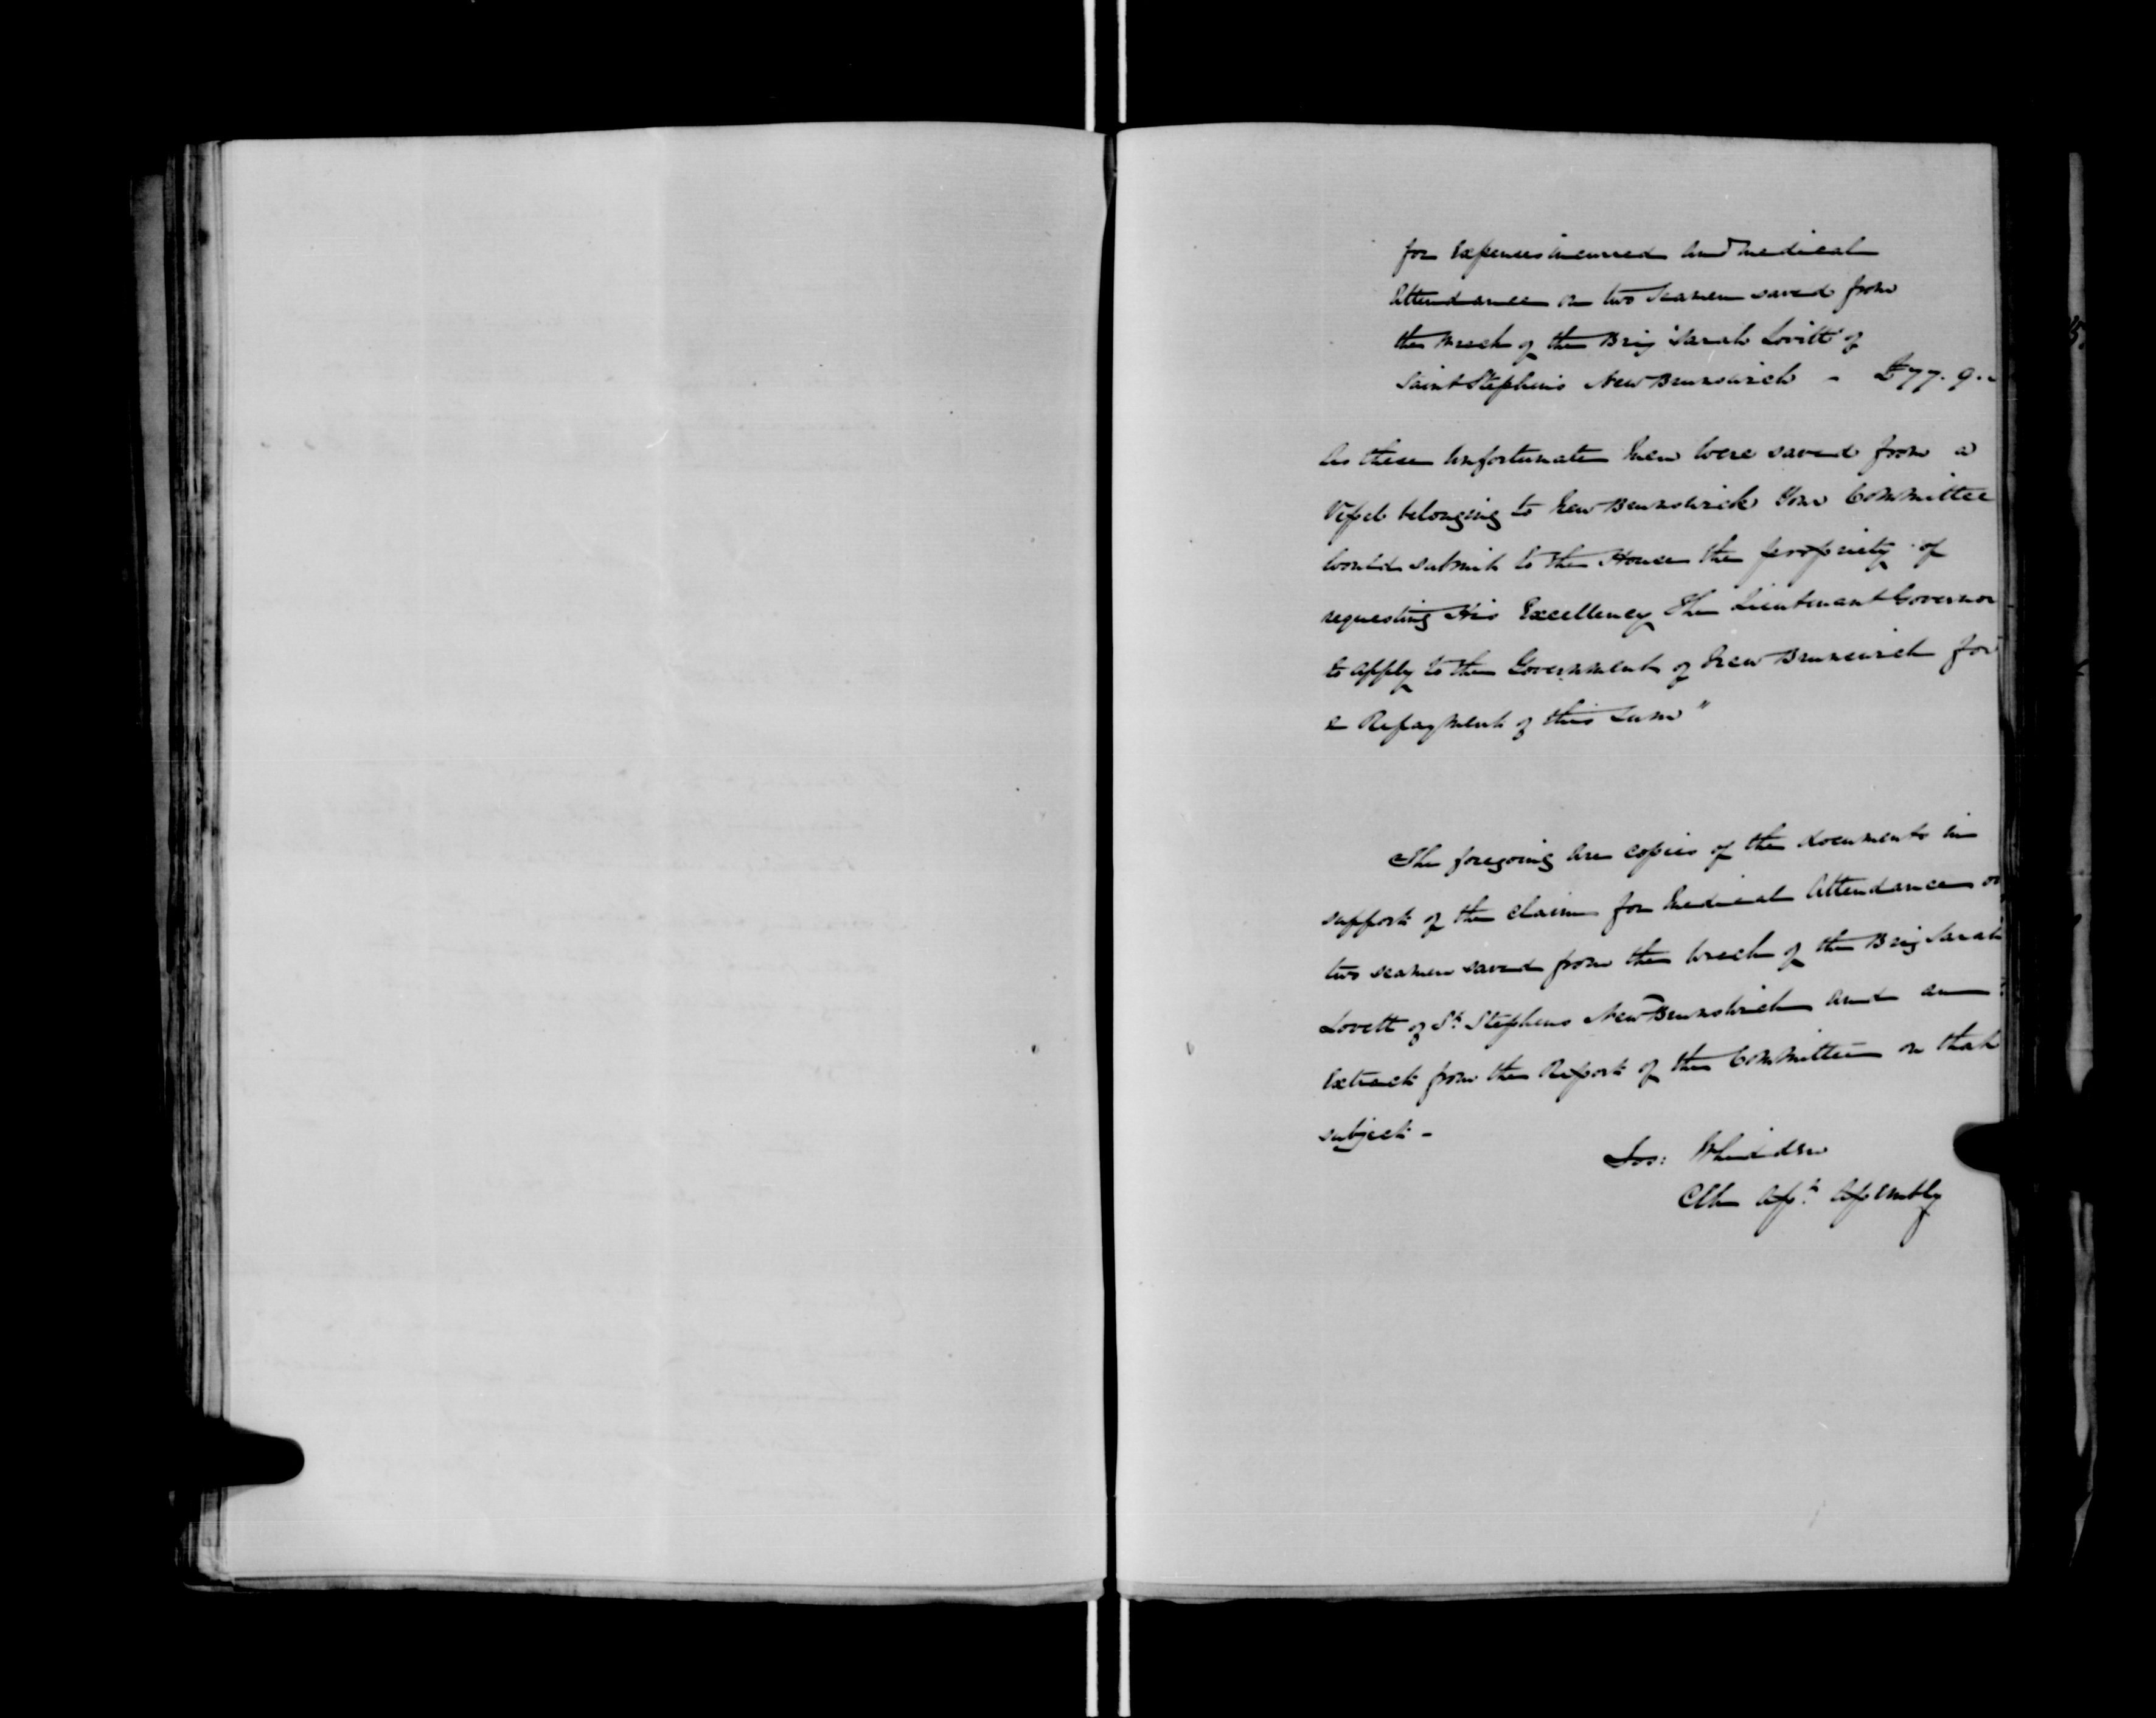 for Expenses incurred and medical
Attendance on two Seamen saved from
the wreck of the Brig "Sarah Lovitt" of
Saint Stephens New Brunswick - £77. 9.
As these unfortunate Men were saved from a
Vessel belonging to New Brunswick Your Committee
would submit to the House the propriety of
requesting His Excellency The Lieutenant Governor
to apply to the Government of New Brunswick for
a Repayment of this Sum"
The foregoing are copies of the documents in
support of the claim for Medical Attendance on
two seamen saved from the wreck of the Brig Sarah
Lovett of St. Stephens New Brunswick and an
Extract from the Report of the Committee on that
subject -
Jos: Whidden
Clk Asst. Assembly